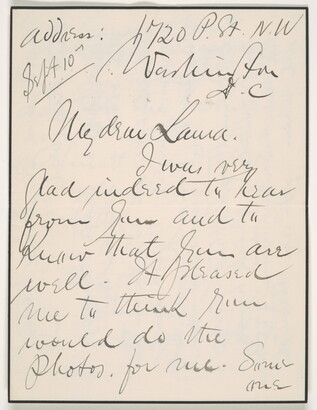 address: 1720 P. St. N.W
Sept 10th
Washington
D.C
My dear Laura.
I was very
glad indeed to hear
from you and to
know that you are
well. It pleased
me to think you
would do the
photos. for me. Some
one